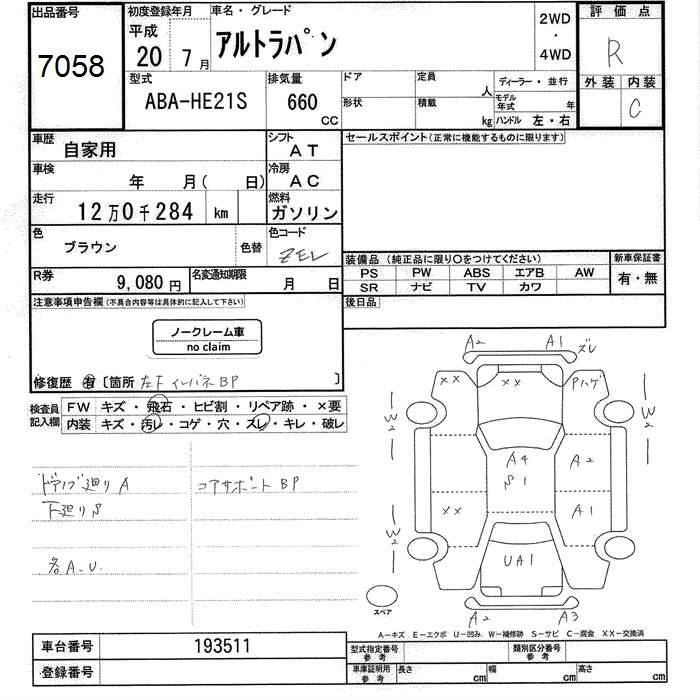 出品番号 初度登録年月 車名・グレード 2WD 評価点
7058 平成 アルトラパン ・ R
20 7月 4WD
型式 排気量 ドア 定員 人 ディーラー・並行 外装 内装
ABA-HE21S 660 cc 形状 積載 kg モデル年式 年 C
ハンドル 左・右
車歴 自家用 シフト AT セールスポイント(正常に機能するものに限ります)
車検 年 月( 日) 冷房 AC
走行 12万0千284 km 燃料 ガソリン
色 ブラウン 色替 色コード ZEL 装備品(純正品に限り○をつけてください) 新車保証書
PS PW ABS エアB AW 有・無
R券 9,080円 名変通知期限 月 日 SR ナビ TV カワ
注意事項申告欄(不具合内容等は具体的に記入して下さい) 後日品
ノークレーム車
no claim
修復歴 有 〔箇所 左F インパネBP 〕
検査員 FW キズ・飛石・ヒビ割・リペア跡・×要
記入欄 内装 キズ・汚レ・コゲ・穴・スレ・キレ・破レ
ドアノブ廻りA コアサポートBP
下廻りS
各A.U.
A2 A1 ズレ
XX XX Pハゲ
W2 W2
A4 A2
S1
XX A1
W2 W2
UA1
スペア A2 A3
A-キズ E-エクボ U-凹み W-補修跡 S-サビ C-腐食 XX-交換済
車台番号 193511 型式指定番号 参考 類別区分番号 参考
登録番号 車庫証明用 参考 長さ cm 幅 cm 高さ cm